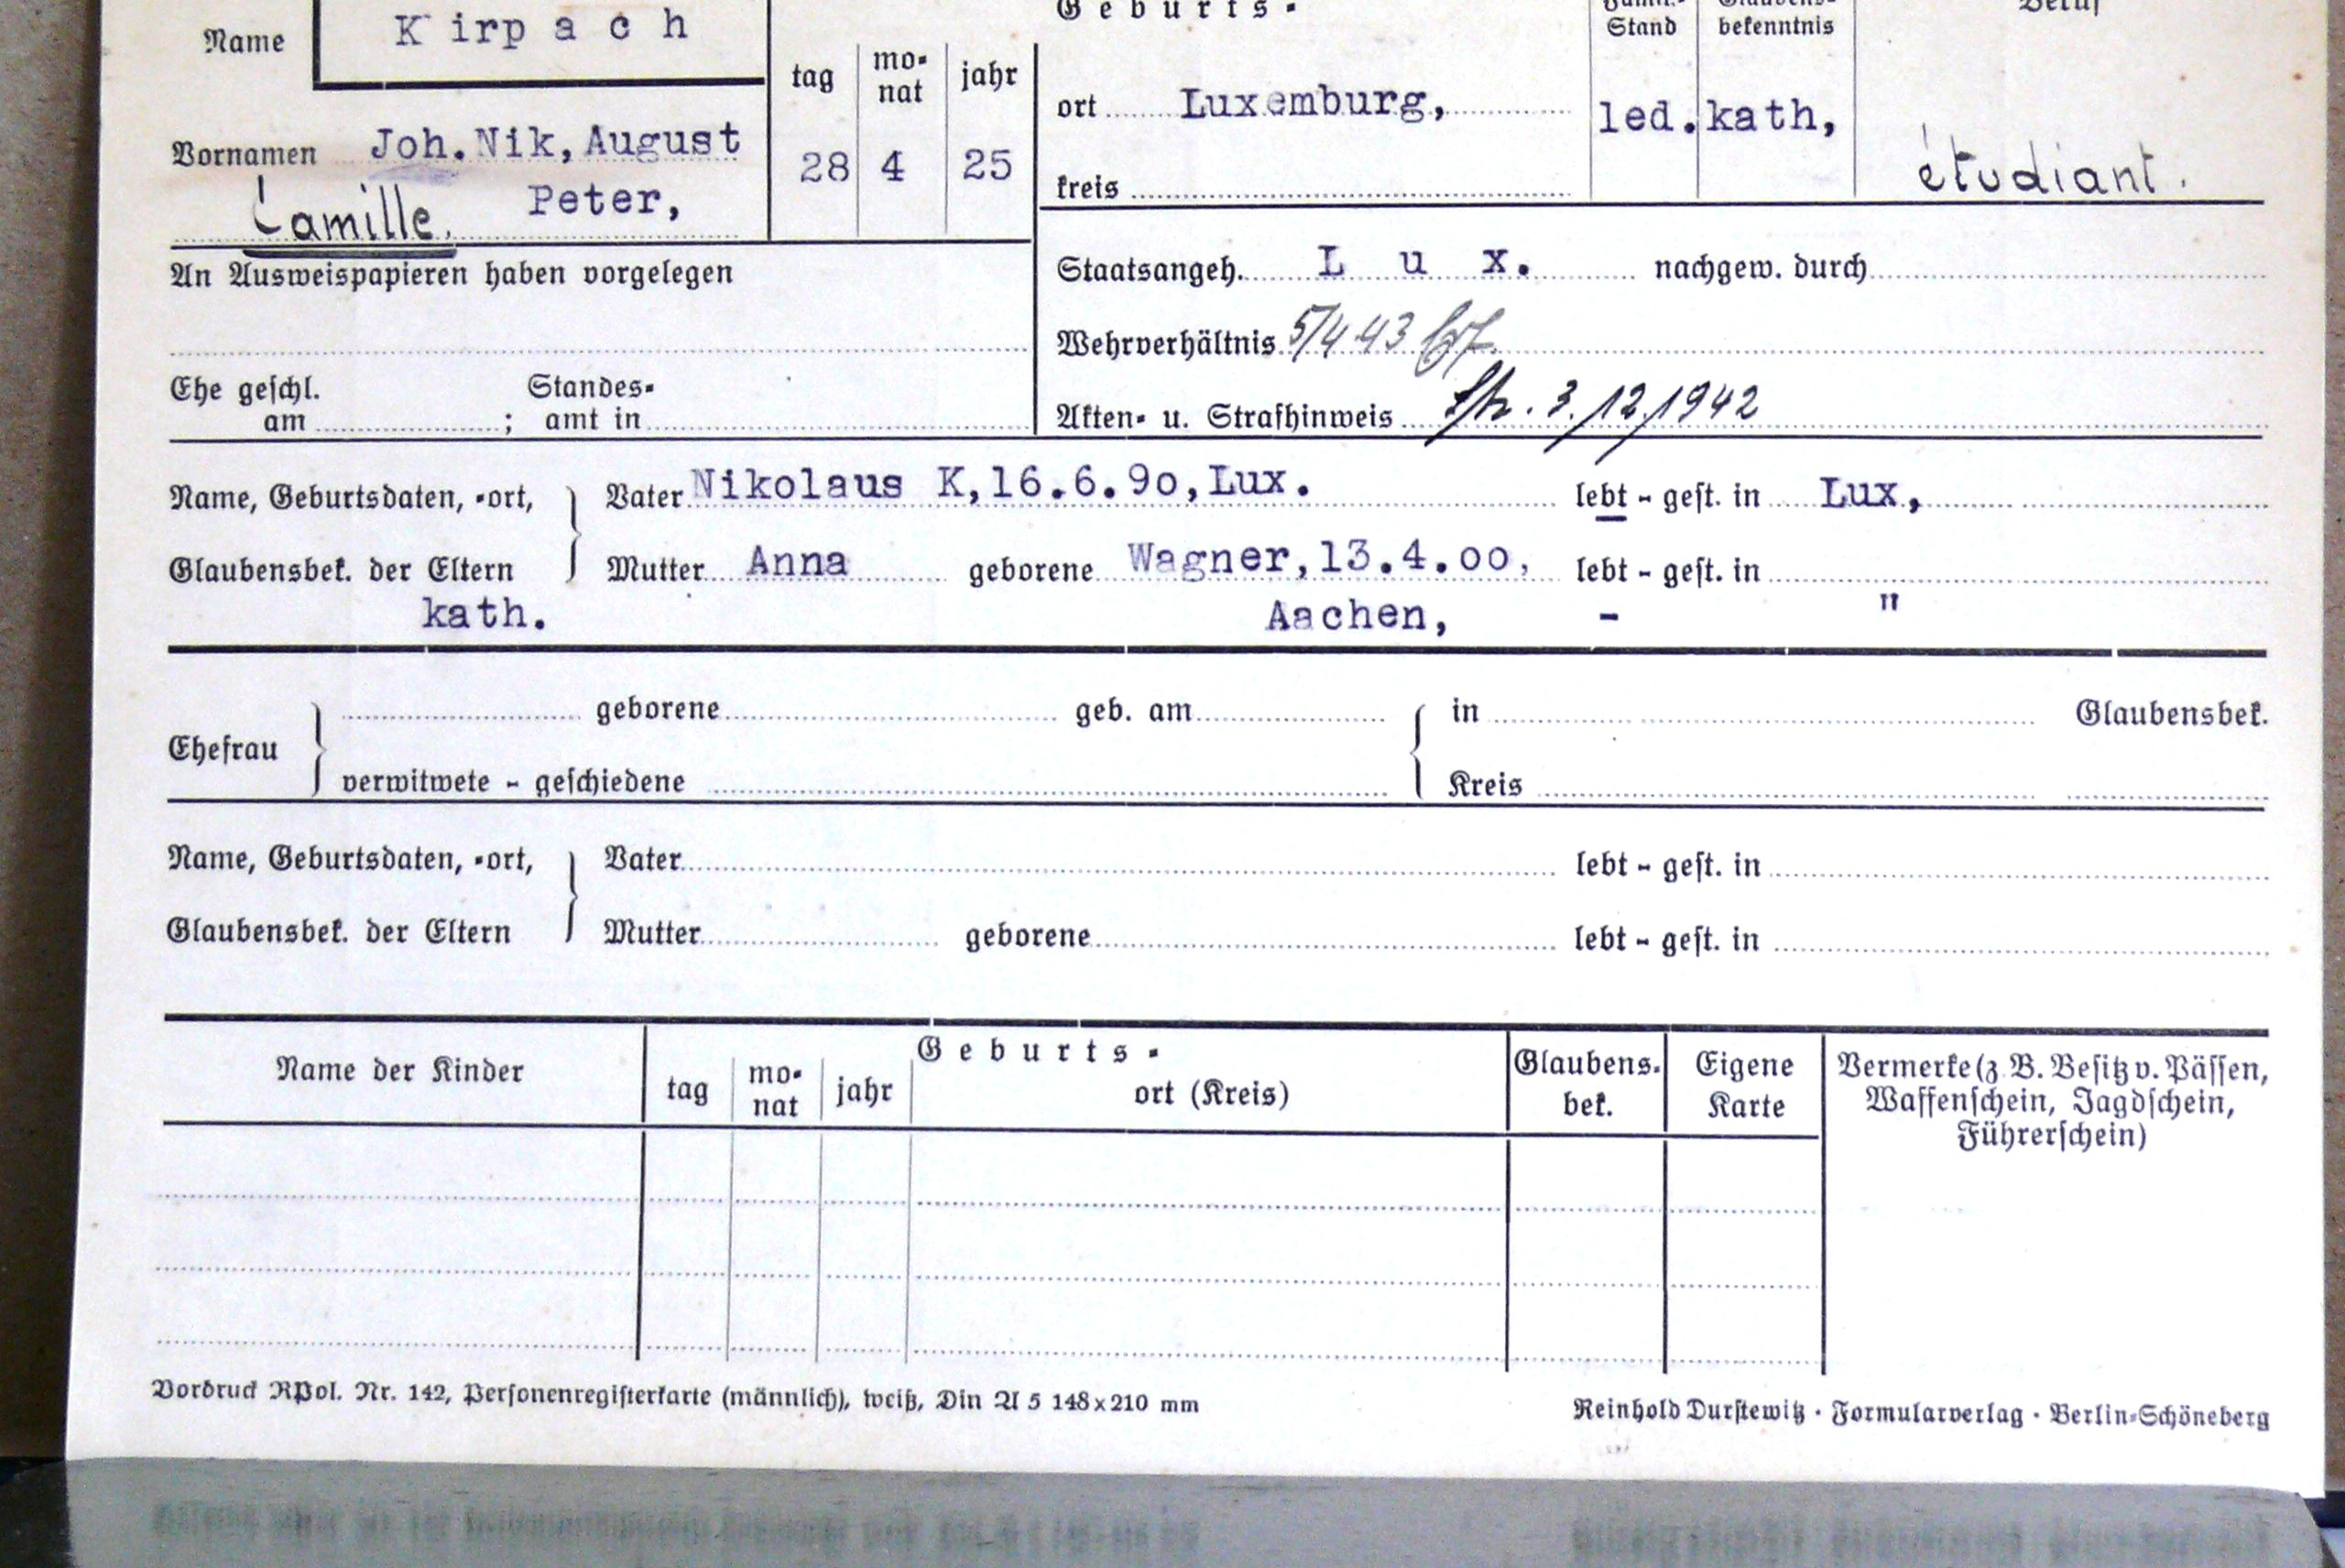 Name Kirpach
Geburts-
Stand
bekenntnis
Beruf
tag mo-nat jahr
ort Luxemburg,
led. kath,
Vornamen Joh.Nik,August
28 4 25
kreis
étudiant.
Camille. Peter,
An Ausweispapieren haben vorgelegen
Staatsangeh. Lux. nachgew. durch
Wehrverhältnis 5/4 43
Ehe geschl. am ; Standes-amt in
Akten- u. Strafhinweis 3./12/1942
Name, Geburtsdaten, -ort, Vater Nikolaus K,16.6.9o,Lux. lebt - gest. in Lux,
Glaubensbek. der Eltern Mutter Anna geborene Wagner,13.4.oo, lebt - gest. in
kath. Aachen, - "
geborene geb. am in Glaubensbek.
Ehefrau
verwitwete - geschiedene Kreis
Name, Geburtsdaten, -ort, Vater lebt - gest. in
Glaubensbek. der Eltern Mutter geborene lebt - gest. in
Name der Kinder
Geburts-
tag mo-nat jahr ort (Kreis)
Glaubens-bek.
Eigene Karte
Vermerke (z. B. Besitz v. Pässen,
Waffenschein, Jagdschein,
Führerschein)
Vordruck RPol. Nr. 142, Personenregisterkarte (männlich), weiß, Din A 5 148x210 mm
Reinhold Durstewitz · Formularverlag · Berlin-Schöneberg